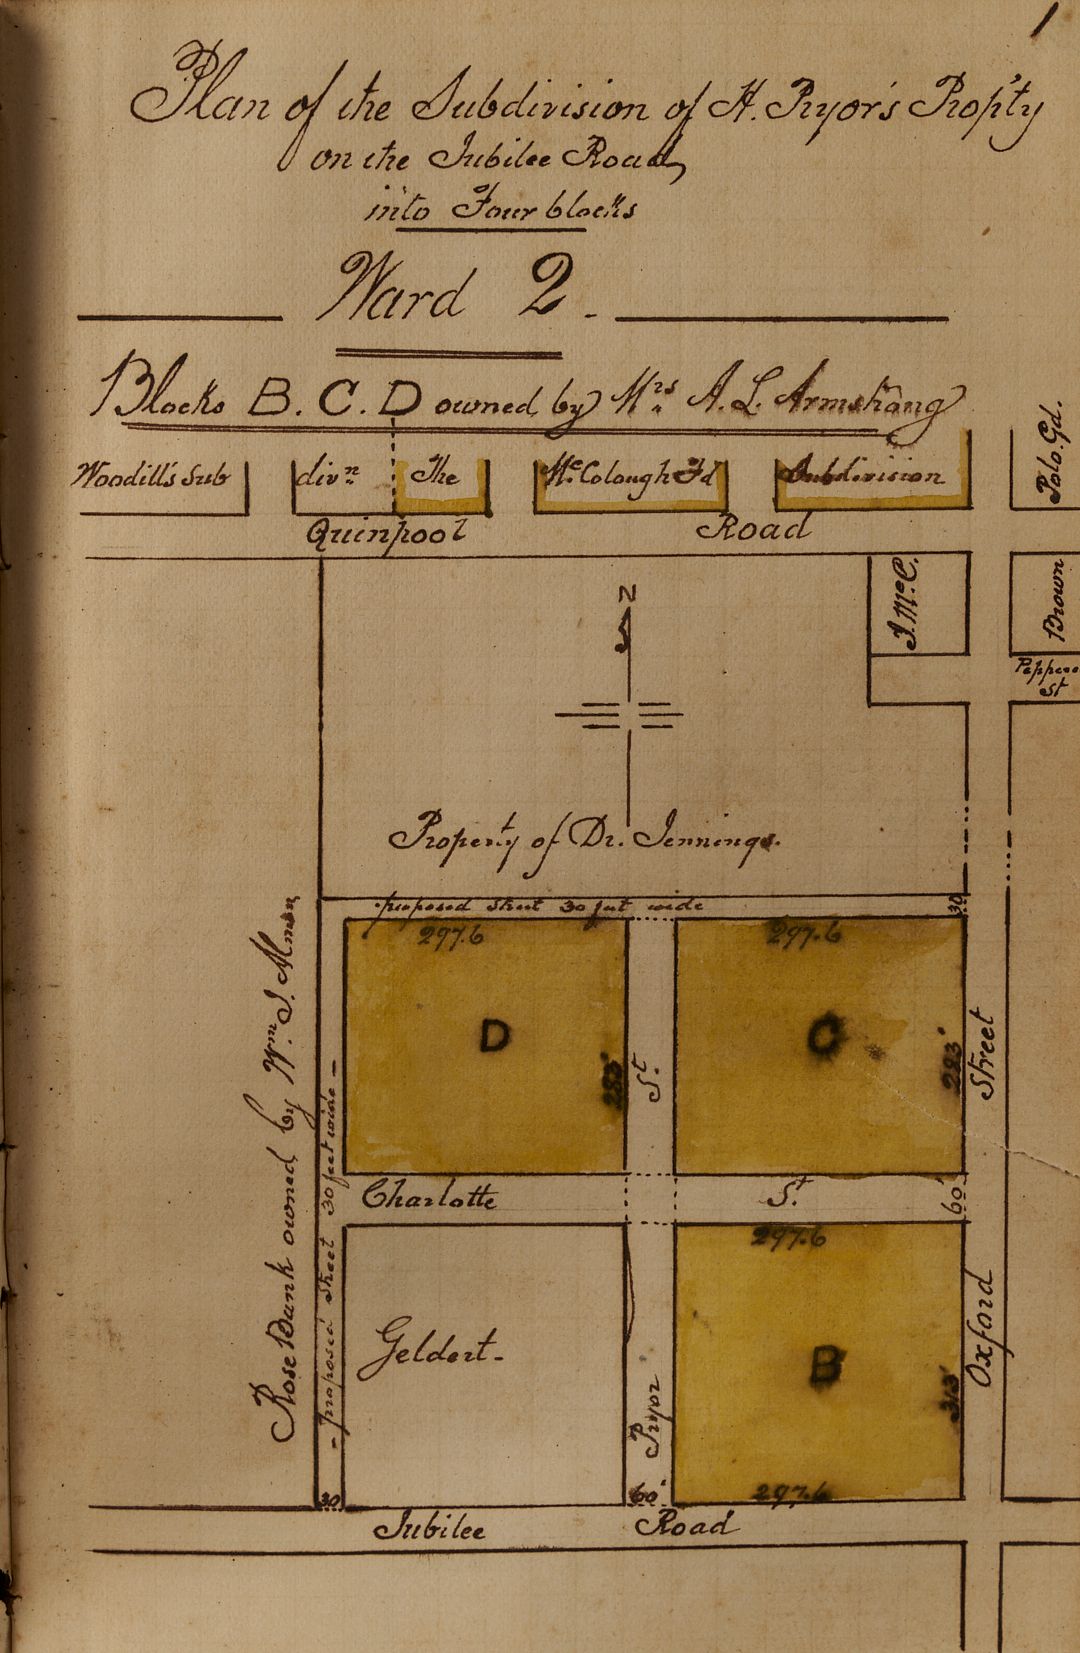 1
Plan of the Subdivision of H. Pryor's Prop'ty
on the Jubilee Road,
into Four blocks
Ward 2.
Blocks B. C. D owned by Mrs. A. L. Armstrong
Woodill's Sub divn The McColough Fd Subdivision
Polo. Gd.
Quinpool Road
J. McC.
Brown
N
St
Property of Dr. Jennings.
proposed street 30 feet wide
30
297.6
297.6
D
C
283'
283'
St.
Street
Rose Bank owned by Wm. J. Almon
- proposed street 30 feet wide -
Charlotte St.
60'
297.6
Geldert-
B
Pryor
313'
Oxford
30
60'
297.6
Jubilee Road